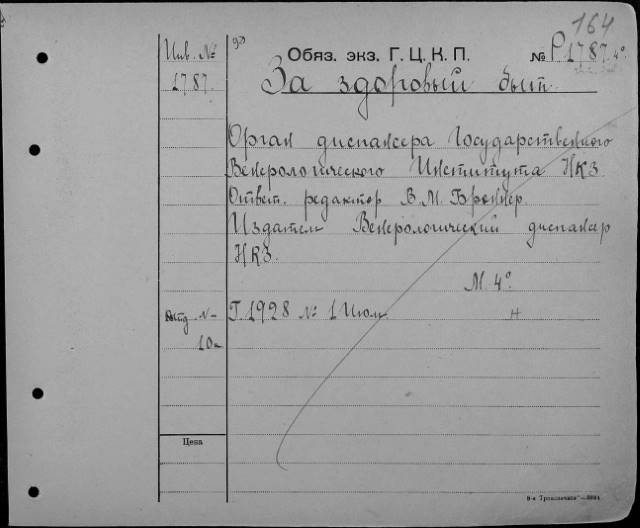 164
Инв. №
1787.
Обяз. экз. Г. Ц. К. П.
№ Р1787. 4°
За здоровый быт
Орган диспансера Государственного
Венерологического Института НКЗ
Ответ. редактор В. М. Броннер.
Издатель Венерологический диспансер
НКЗ.
М. 4°.
Отд. №
10
Г. 1928 № 1 Июль
н
Цена